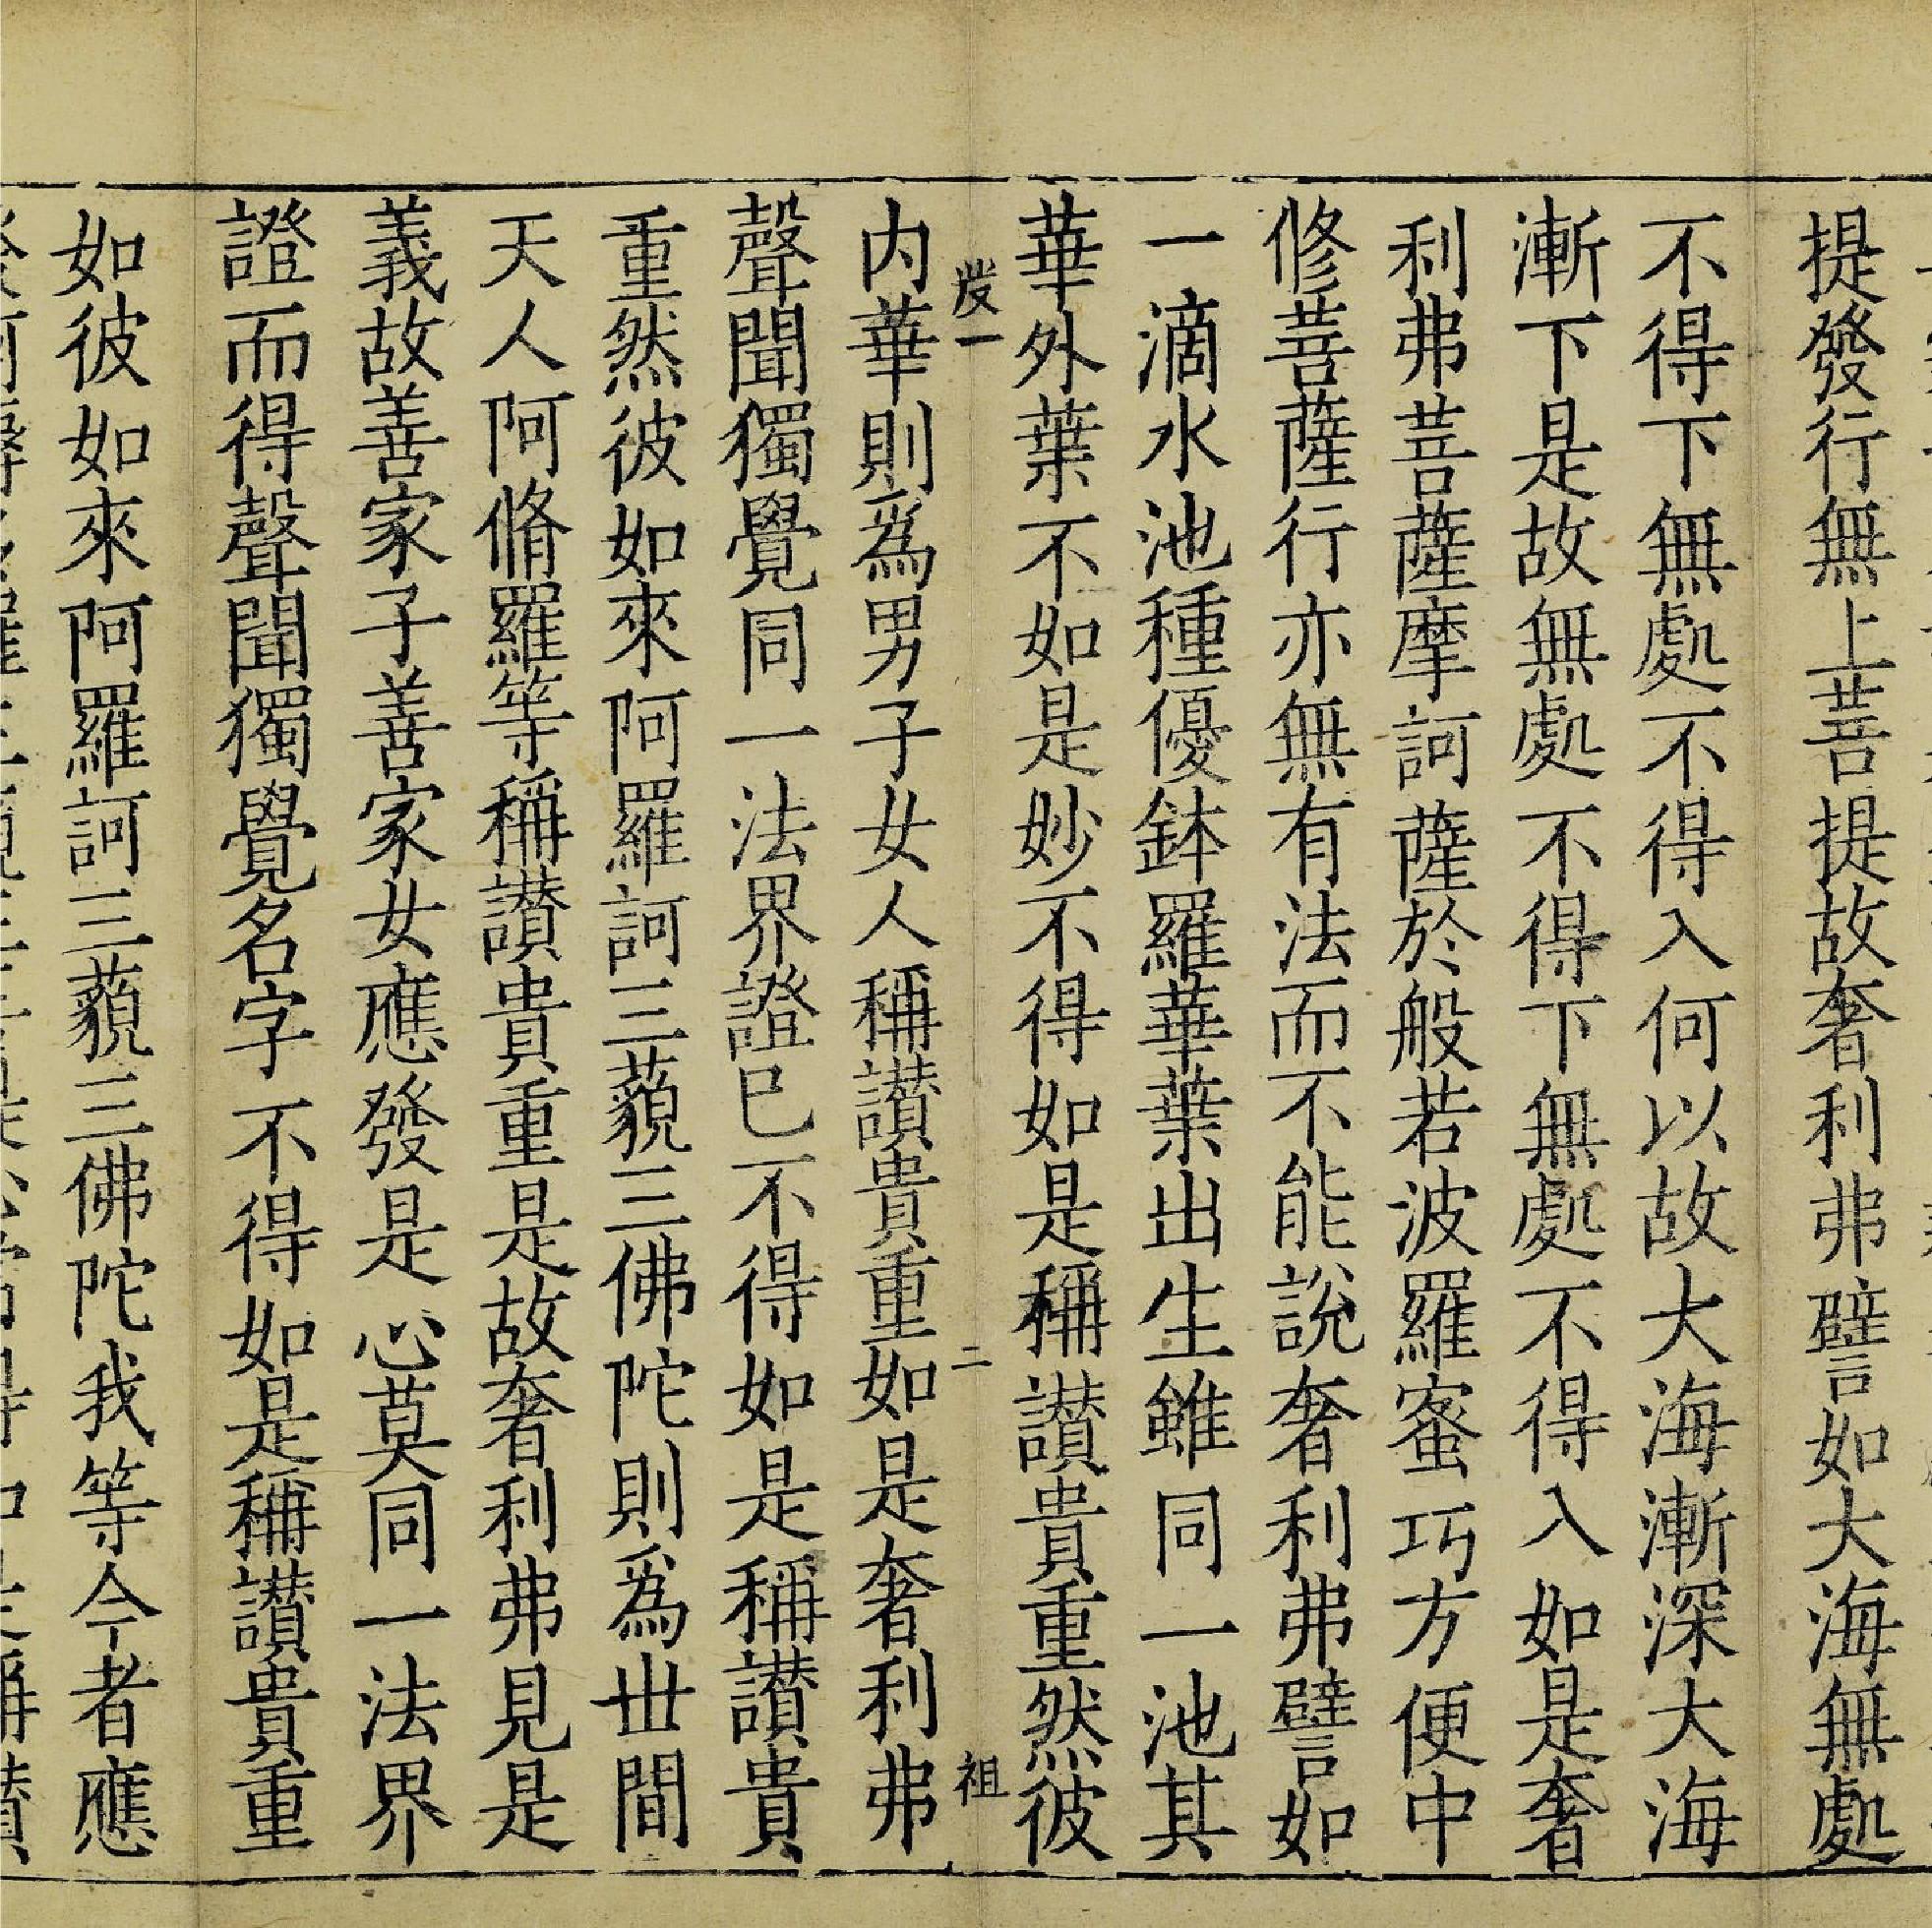 提發行無上菩提故奢利弗譬如大海無處
不得下無處不得入何以故大海漸深大海
漸下是故無處不得下無處不得入如是奢
利弗菩薩摩訶薩於般若波羅蜜巧方便中
修菩薩行亦無有法而不能說奢利弗譬如
一滴水池種優鉢羅華葉出生雖同一池其
華外葉不如是妙不得如是稱讃貴重然彼
癹一 二 祖
内華則爲男子女人稱讃貴重如是奢利弗
聲聞獨覺同一法界證巳不得如是稱讃貴
重然彼如來阿羅訶三藐三佛陀則爲丗間
天人阿脩羅等稱讃貴重是故奢利弗見是
義故善家子善家女應發是心莫同一法界
證而得聲聞獨覺名字不得如是稱讃貴重
如彼如來阿羅訶三藐三佛陀我等今者應